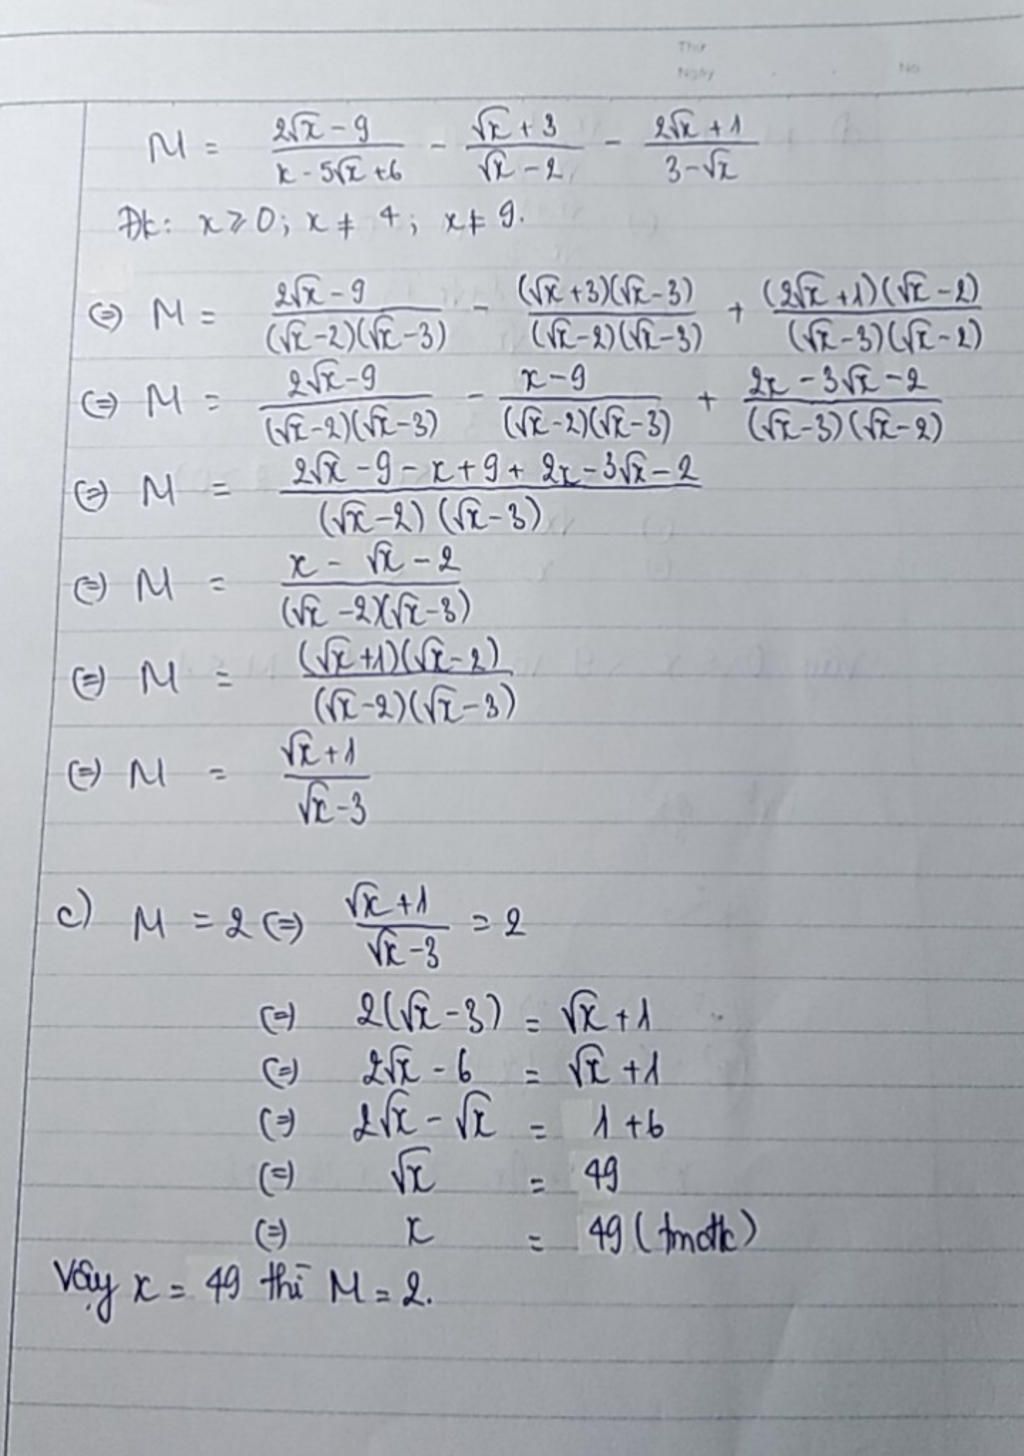 Thứ
Ngày No
M = \frac{2\sqrt{x} - 9}{x - 5\sqrt{x} + 6} - \frac{\sqrt{x} + 3}{\sqrt{x} - 2} - \frac{2\sqrt{x} + 1}{3 - \sqrt{x}}
Đk: x ⩾ 0; x ≠ 4; x ≠ 9.
(=) M = \frac{2\sqrt{x} - 9}{(\sqrt{x} - 2)(\sqrt{x} - 3)} - \frac{(\sqrt{x} + 3)(\sqrt{x} - 3)}{(\sqrt{x} - 2)(\sqrt{x} - 3)} + \frac{(2\sqrt{x} + 1)(\sqrt{x} - 2)}{(\sqrt{x} - 3)(\sqrt{x} - 2)}
(=) M = \frac{2\sqrt{x} - 9}{(\sqrt{x} - 2)(\sqrt{x} - 3)} - \frac{x - 9}{(\sqrt{x} - 2)(\sqrt{x} - 3)} + \frac{2x - 3\sqrt{x} - 2}{(\sqrt{x} - 3)(\sqrt{x} - 2)}
(=) M = \frac{2\sqrt{x} - 9 - x + 9 + 2x - 3\sqrt{x} - 2}{(\sqrt{x} - 2)(\sqrt{x} - 3)}
(=) M = \frac{x - \sqrt{x} - 2}{(\sqrt{x} - 2)(\sqrt{x} - 3)}
(=) M = \frac{(\sqrt{x} + 1)(\sqrt{x} - 2)}{(\sqrt{x} - 2)(\sqrt{x} - 3)}
(=) M = \frac{\sqrt{x} + 1}{\sqrt{x} - 3}
c) M = 2 (=) \frac{\sqrt{x} + 1}{\sqrt{x} - 3} = 2
(=) 2(\sqrt{x} - 3) = \sqrt{x} + 1
(=) 2\sqrt{x} - 6 = \sqrt{x} + 1
(=) 2\sqrt{x} - \sqrt{x} = 1 + 6
(=) \sqrt{x} = 49
(=) x = 49 (tmđk)
Vậy x = 49 thì M = 2.